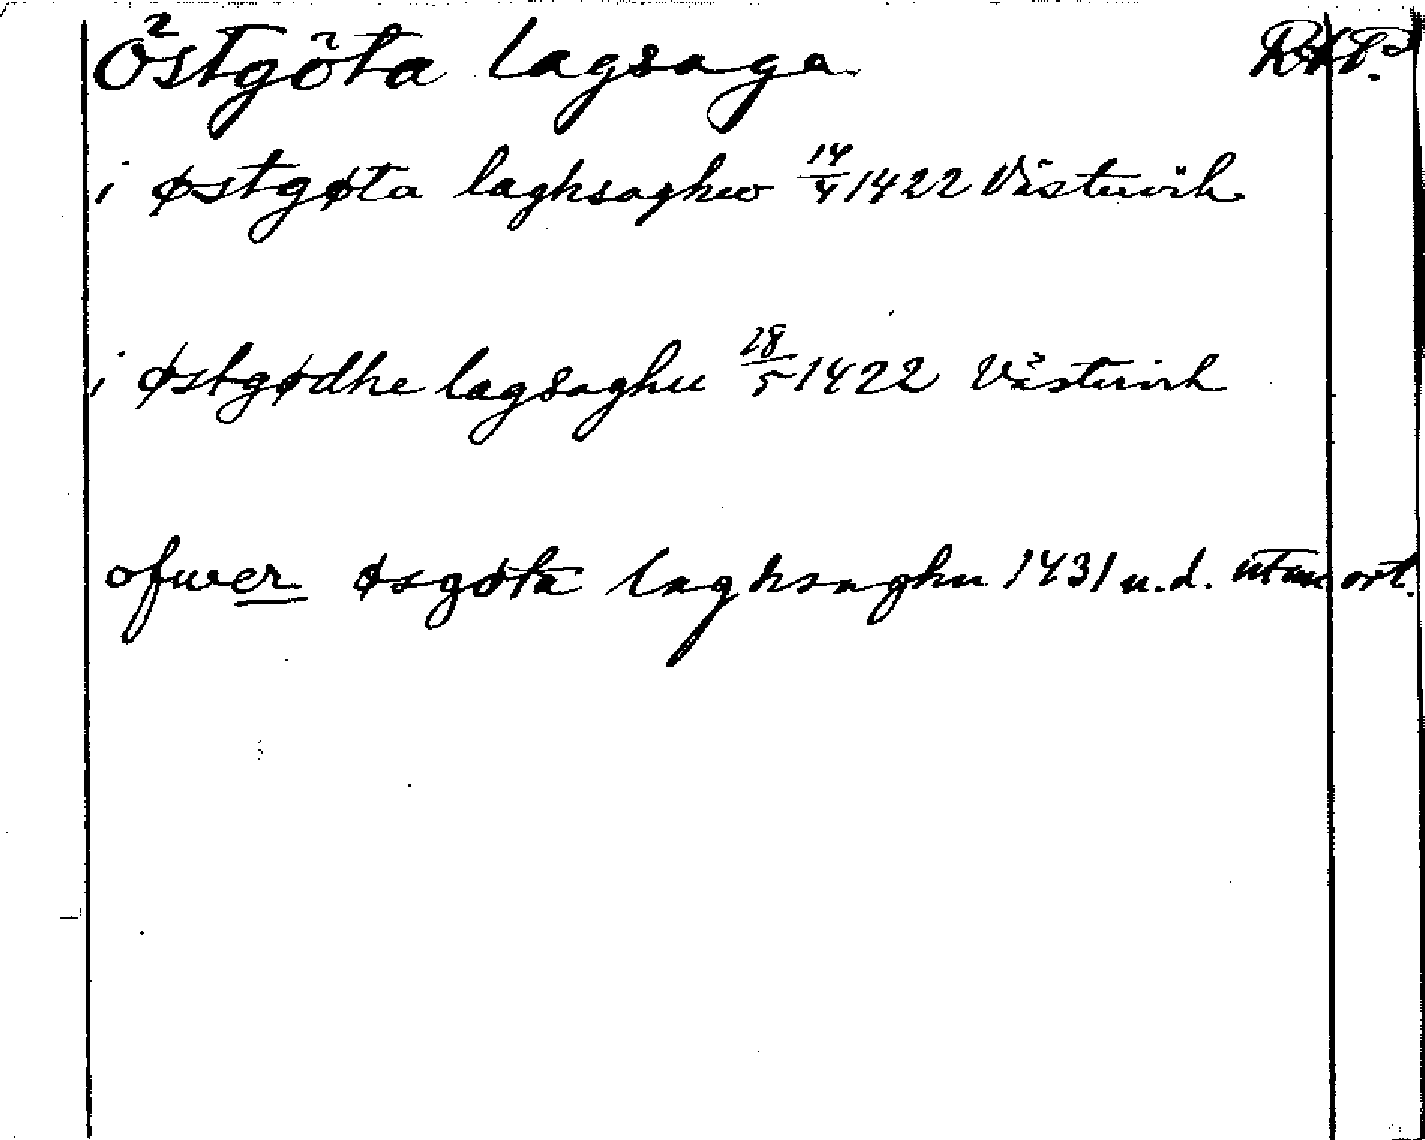 Östgöta lagsaga RAP.
i østgøta laghsaghu 14/4 1422 Västervik
i østgødhe lagsaghu 28/5 1422 Västervik
ofwer øsgøta laghsaghu 1431 u.d. utan ort.